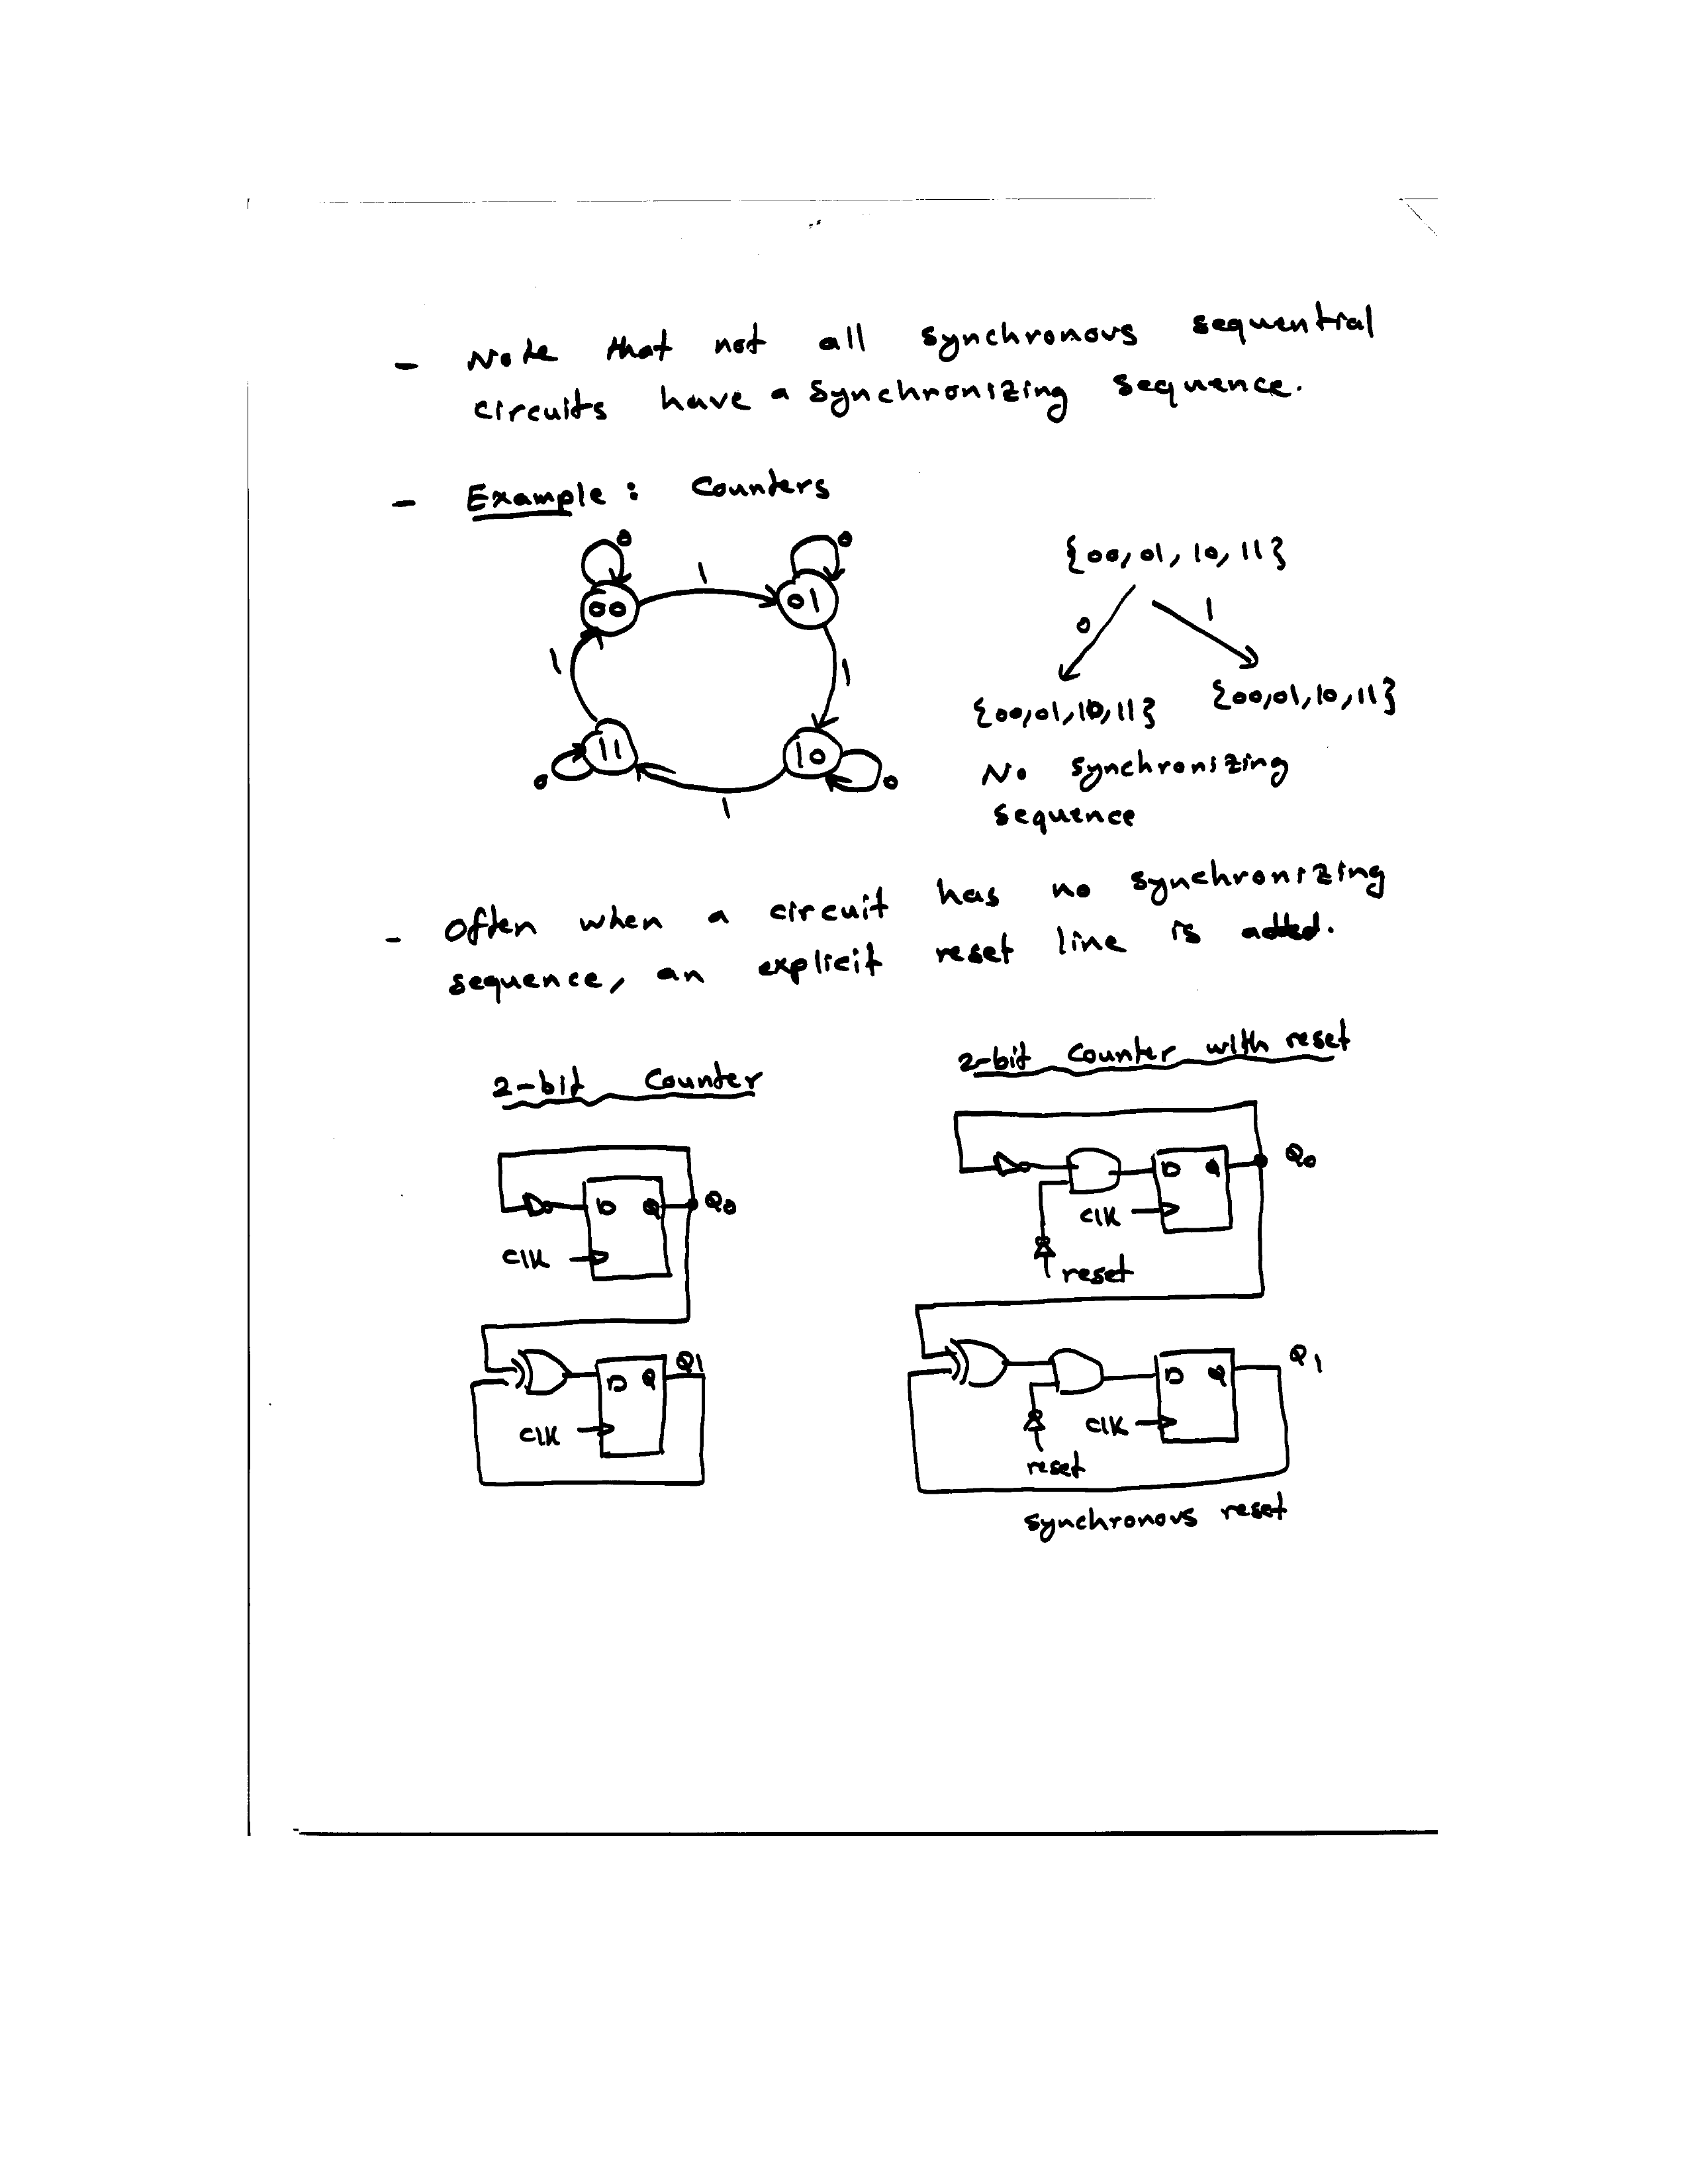 - Note that not all synchronous sequential
circuits have a synchronizing sequence.
- Example: Counters
0
0
1
{00, 01, 10, 11}
00
01
0
1
1
1
{00,01,10,11}
{00,01,10,11}
11
10
No synchronizing
0
0
1
sequence
- Often when a circuit has no synchronizing
sequence, an explicit reset line is added.
2-bit Counter
2-bit Counter with reset
D Q
Q0
Clk
D Q
Q0
Clk
reset
D Q
Q1
Clk
D Q
Q1
Clk
reset
synchronous reset